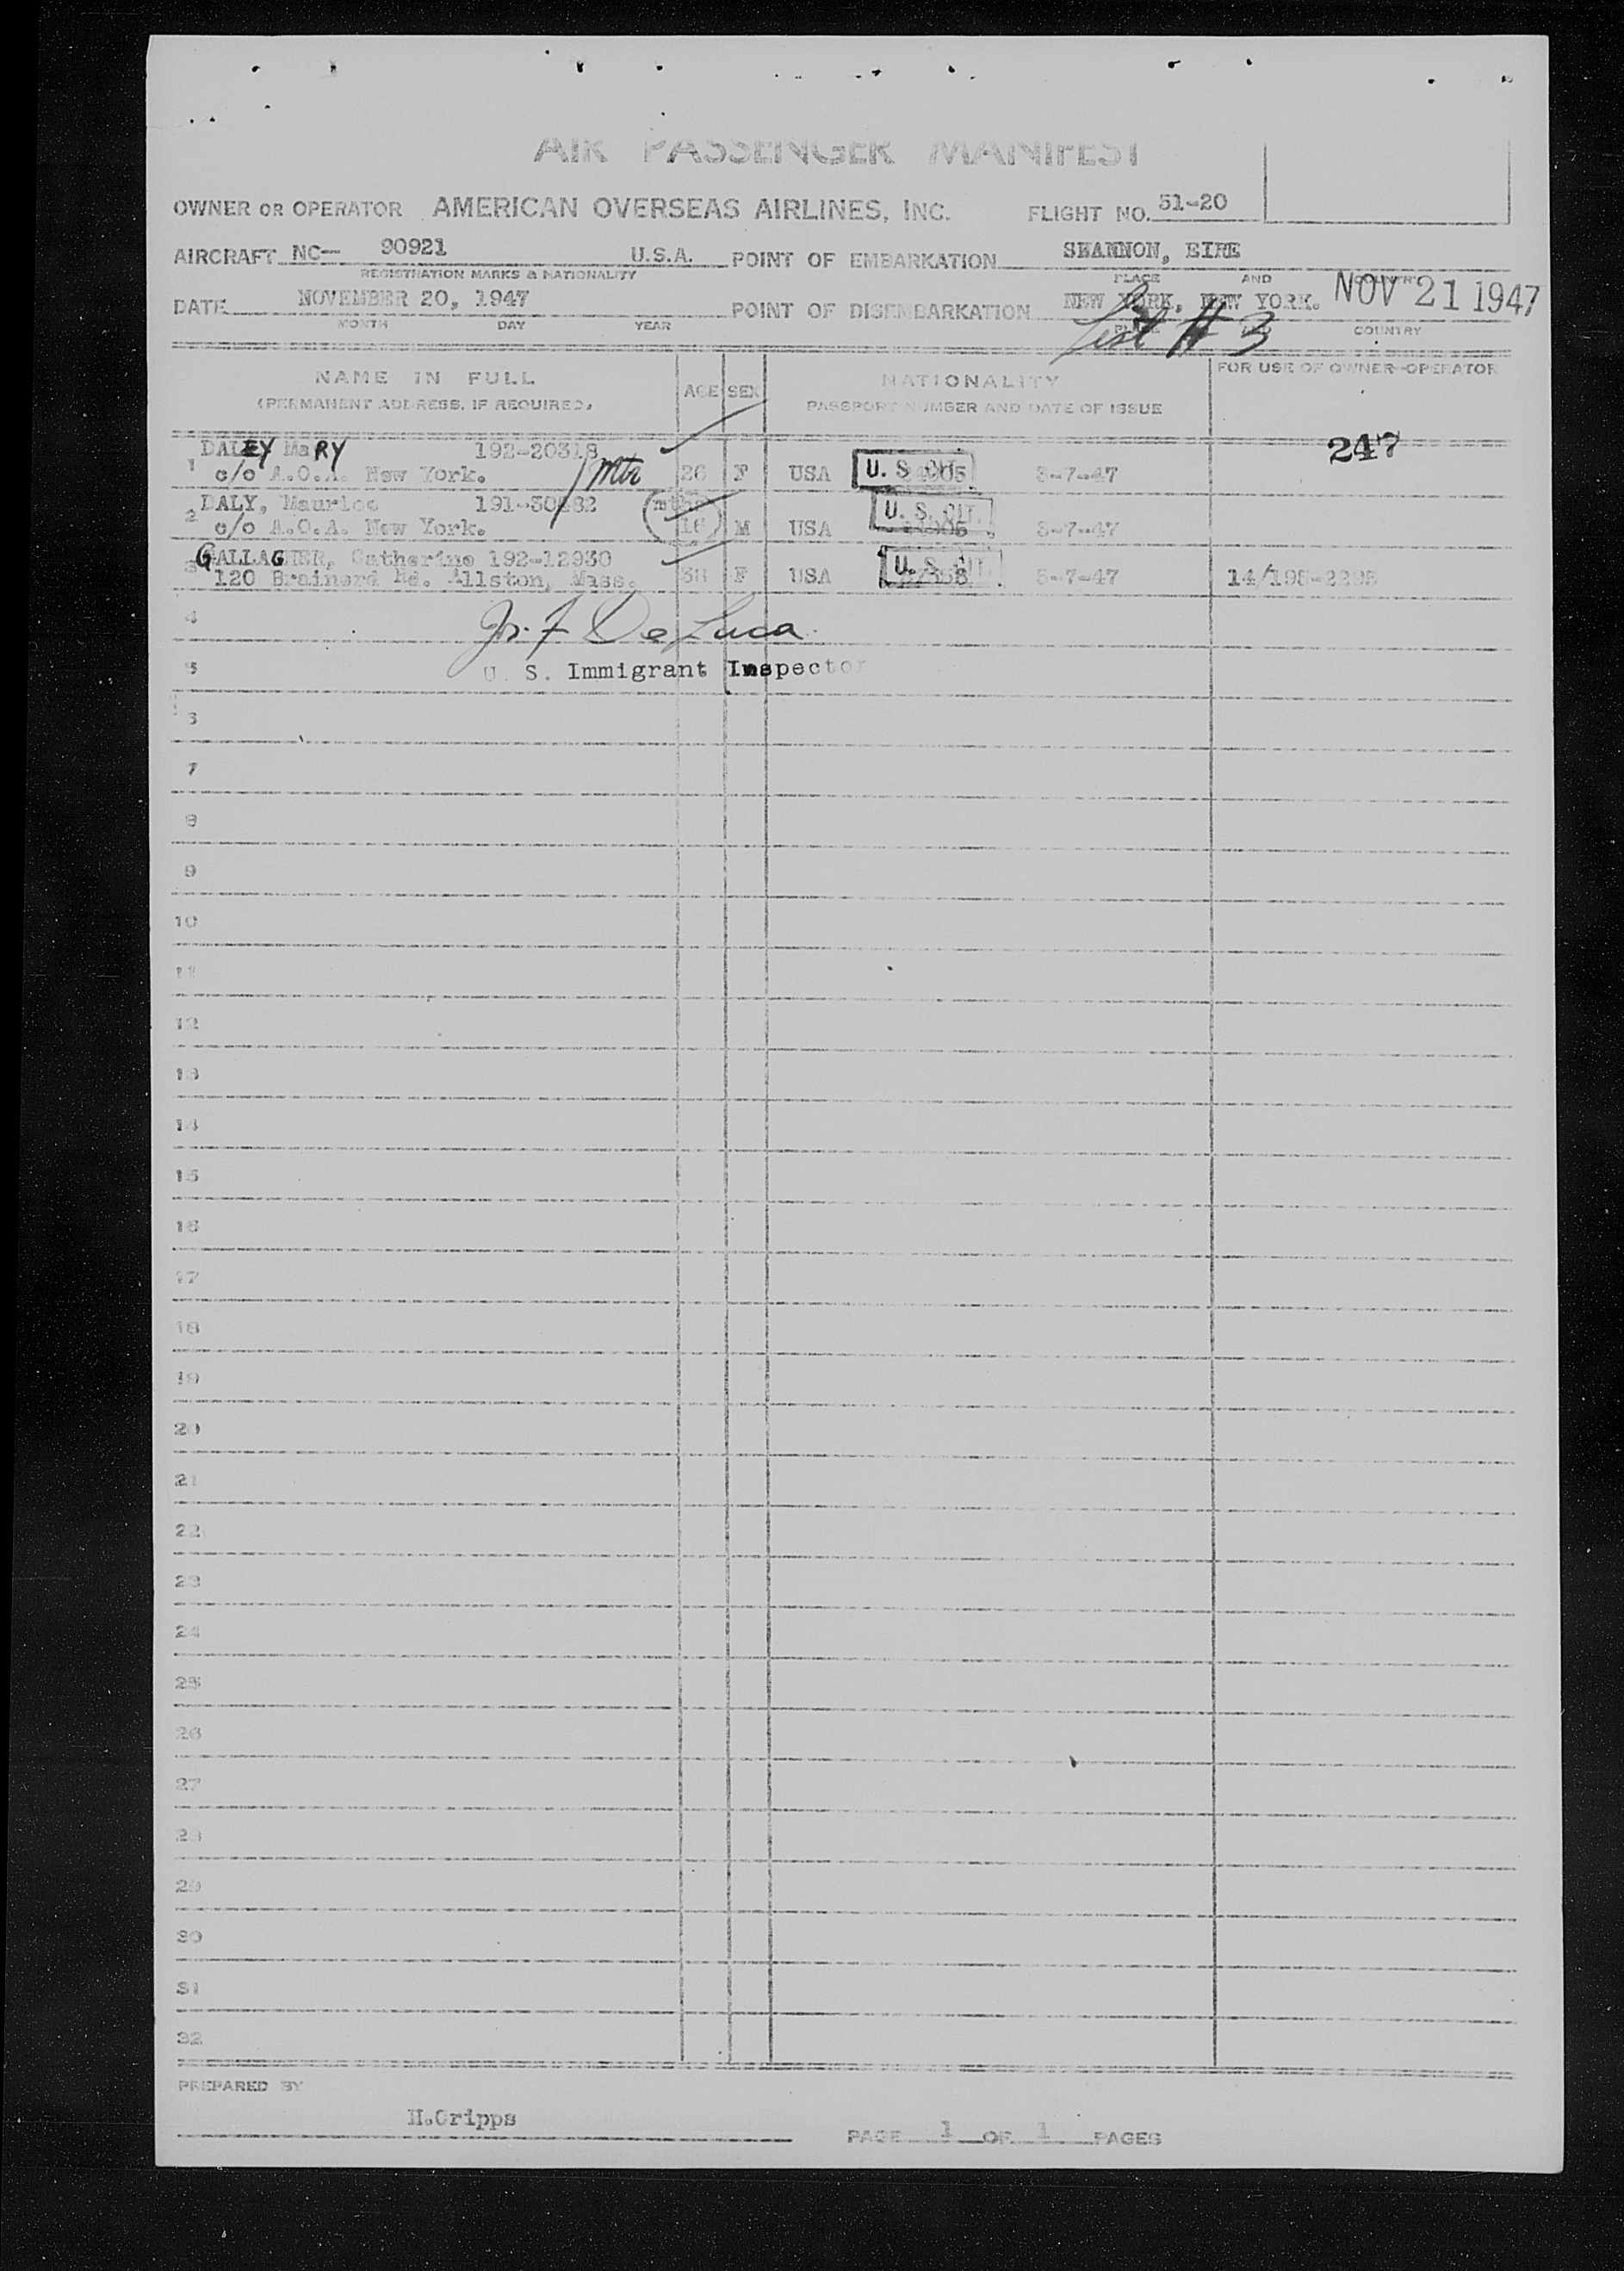 AIR PASSENGER MANIFEST
OWNER OR OPERATOR AMERICAN OVERSEAS AIRLINES, INC. FLIGHT NO. 51-20
AIRCRAFT NC- 90921 U.S.A. POINT OF EMBARKATION SHANNON, EIRE
REGISTRATION MARKS & NATIONALITY PLACE AND COUNTRY
DATE NOVEMBER 20, 1947 POINT OF DISEMBARKATION NEW YORK, NEW YORK. NOV 21 1947
MONTH DAY YEAR PLACE COUNTRY
List # 3
NAME IN FULL AGE SEX NATIONALITY FOR USE OF OWNER-OPERATOR
(PERMANENT ADDRESS, IF REQUIRED) PASSPORT NUMBER AND DATE OF ISSUE
1 DALEY MaRY 192-20318 247
c/o A.O.A. New York. Mtr 26 F USA U. S. CIT. 3-7-47
2 DALY, Maurice mths
c/o A.O.A. New York. 16 M USA U. S. CIT. 3-7-47
3 GALLAGHER, Catherine 192-12930
120 Brainerd Rd. Allston, Mass. 38 F USA U. S. CIT. 5-7-47
4 De Luca
5 U. S. Immigrant Inspector
6
7
8
9
10
11
12
13
14
15
16
17
18
19
20
21
22
23
24
25
26
27
28
29
30
31
32
PREPARED BY
H.Cripps
PAGE 1 OF 1 PAGES